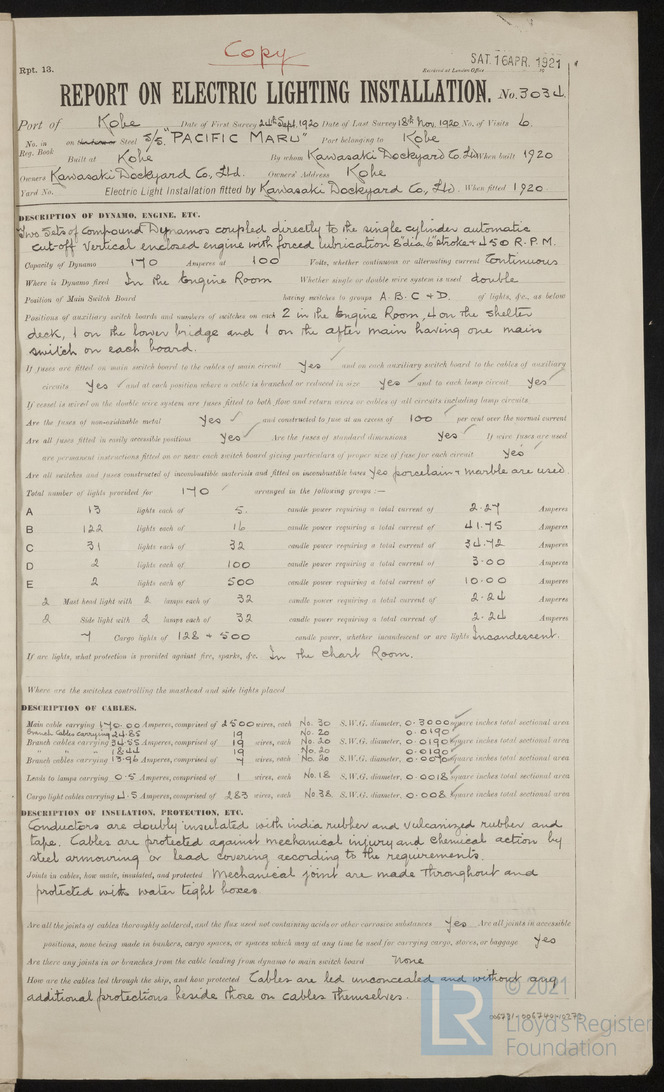 Copy
SAT. 16 APR. 1921
Rpt. 13.
Received at London Office
REPORT ON ELECTRIC LIGHTING INSTALLATION. No. 3034.
Port of Kobe Date of First Survey 24th Sept. 1920 Date of Last Survey 18th Nov. 1920 No. of Visits 6
No. in Reg. Book on the Steel S/S. "PACIFIC MARU" Port belonging to Kobe
Built at Kobe By whom Kawasaki Dockyard Co. Ltd When built 1920
Owners Kawasaki Dockyard Co, Ltd. Owners' Address Kobe
Yard No. Electric Light Installation fitted by Kawasaki Dockyard Co, Ltd. When fitted 1920.
DESCRIPTION OF DYNAMO, ENGINE, ETC.
Two Sets of Compound Dynamos coupled directly to the single cylinder automatic
cut-off vertical enclosed engine with forced lubrication 8" dia 6" stroke + 450 R.P.M.
Capacity of Dynamo 170 Amperes at 100 Volts, whether continuous or alternating current Continuous
Where is Dynamo fixed In the Engine Room Whether single or double wire system is used double
Position of Main Switch Board having switches to groups A. B. C + D. of lights, &c., as below
Positions of auxiliary switch boards and numbers of switches on each 2 in the Engine Room, 4 on the shelter
deck, 1 on the lower bridge and 1 on the after main having one main
switch on each board.
If fuses are fitted on main switch board to the cables of main circuit Yes and on each auxiliary switch board to the cables of auxiliary
circuits Yes and at each position where a cable is branched or reduced in size Yes and to each lamp circuit Yes
If vessel is wired on the double wire system are fuses fitted to both flow and return wires or cables of all circuits including lamp circuits
Are the fuses of non-oxidizable metal Yes and constructed to fuse at an excess of 100 per cent over the normal current
Are all fuses fitted in easily accessible positions Yes Are the fuses of standard dimensions Yes If wire fuses are used
are permanent instructions fitted on or near each switch board giving particulars of proper size of fuse for each circuit Yes
Are all switches and fuses constructed of incombustible materials and fitted on incombustible bases Yes porcelain + marble are used
Total number of lights provided for 170 arranged in the following groups :—
A 13 lights each of 5. candle power requiring a total current of 2.27 Amperes
B 122 lights each of 16 candle power requiring a total current of 41.75 Amperes
C 31 lights each of 32 candle power requiring a total current of 34.72 Amperes
D 2 lights each of 100 candle power requiring a total current of 3.00 Amperes
E 2 lights each of 500 candle power requiring a total current of 10.00 Amperes
2 Mast head light with 2 lamps each of 32 candle power requiring a total current of 2.24 Amperes
2 Side light with 2 lamps each of 32 candle power requiring a total current of 2.24 Amperes
7 Cargo lights of 128 + 500 candle power, whether incandescent or arc lights Incandescent.
If arc lights, what protection is provided against fire, sparks, &c. In the Chart Room.
Where are the switches controlling the masthead and side lights placed
DESCRIPTION OF CABLES.
Main cable carrying 170.00 Amperes, comprised of 2500 wires, each No. 30 S.W.G. diameter, 0.3000 square inches total sectional area
Branch Cables carrying 24.85 19 No. 20 0.0190
Branch cables carrying 34.55 Amperes, comprised of 19 wires, each No. 20 S.W.G. diameter, 0.0190 square inches total sectional area
" " 18.44 19 No. 20 0.0190
Branch cables carrying 13.96 Amperes, comprised of 7 wires, each No. 20 S.W.G. diameter, 0.0070 square inches total sectional area
Leads to lamps carrying 0.5 Amperes, comprised of 1 wires, each No. 18 S.W.G. diameter, 0.0018 square inches total sectional area
Cargo light cables carrying 4.5 Amperes, comprised of 283 wires, each No. 38 S.W.G. diameter, 0.008 square inches total sectional area
DESCRIPTION OF INSULATION, PROTECTION, ETC.
Conductors are doubly insulated with india rubber and vulcanized rubber and
tape. Cables are protected against mechanical injury and chemical action by
steel armouring or lead covering according to the requirements.
Joints in cables, how made, insulated, and protected Mechanical joint are made throughout and
protected with water tight boxes.
Are all the joints of cables thoroughly soldered, and the flux used not containing acids or other corrosive substances Yes Are all joints in accessible
positions, none being made in bunkers, cargo spaces, or spaces which may at any time be used for carrying cargo, stores, or baggage Yes
Are there any joints in or branches from the cable leading from dynamo to main switch board None
How are the cables led through the ship, and how protected Cables are led unconcealed and without any
additional protections beside those on cables themselves.
© 2021
LR
Lloyd's Register
Foundation